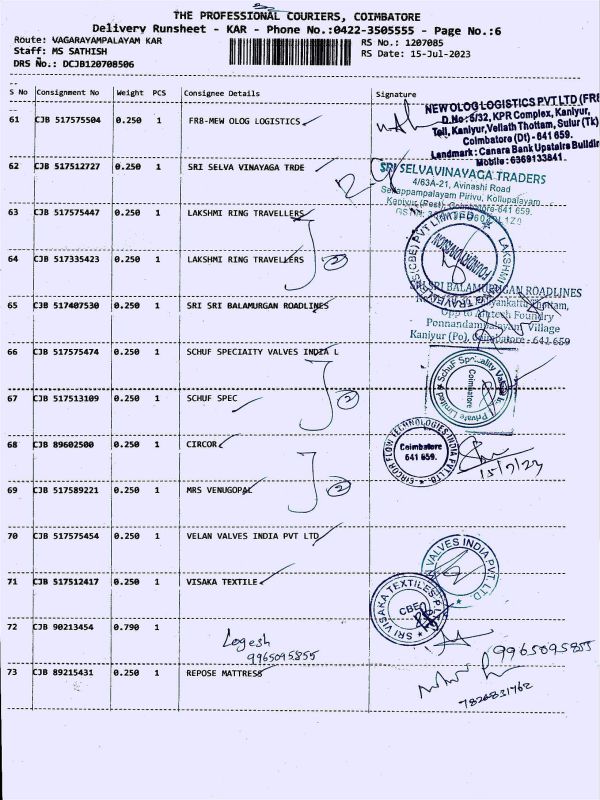 THE PROFESSIONAL COURIERS, COIMBATORE
Delivery Runsheet - KAR - Phone No.:0422-3505555 - Page No.:6
Route: VAGARAYAMPALAYAM KAR
RS No.: 1207085
Staff: MS SATHISH
RS Date: 15-Jul-2023
DRS No.: DCJB120708506
S No Consignment No Weight PCS Consignee Details Signature
61 CJB 517575504 0.250 1 FR8-MEW OLOG LOGISTICS
NEW OLOG LOGISTICS PVT LTD (FR8
D.No: 5/32, KPR Complex, Kaniyur,
Coimbatore (Dt) - 641 659.
Landmark: Canara Bank Upstairs Buildin
Mobile: 6369133841.
62 CJB 517512727 0.250 1 SRI SELVA VINAYAGA TRDE
SRI SELVAVINAYAGA TRADERS
4/63A-21, Avinashi Road
Sellappampalayam Pirivu, Kollupalayam
Kaniyur (Post), Coimbatore-641 659.
63 CJB 517575447 0.250 1 LAKSHMI RING TRAVELLERS
64 CJB 517335423 0.250 1 LAKSHMI RING TRAVELLERS
2
FOUNDRY DIVISION
65 CJB 517407530 0.250 1 SRI SRI BALAMURGAN ROADLINES
SRI SRI BALAMURUGAN ROADLINES
Ponnandampalayam Village
Kaniyur (Po), Coimbatore - 641 659
66 CJB 517575474 0.250 1 SCHUF SPECIAITY VALVES INDIA L
67 CJB 517513109 0.250 1 SCHUF SPEC
2
Coimbatore
68 CJB 89602500 0.250 1 CIRCOR
CIRCOR FLOW TECHNOLOGIES INDIA PVT LTD.
Coimbatore
641 659.
15/7/23
69 CJB 517589221 0.250 1 MRS VENUGOPAL
2
70 CJB 517575454 0.250 1 VELAN VALVES INDIA PVT LTD
VALVES INDIA PVT. LTD
71 CJB 517512417 0.250 1 VISAKA TEXTILE
SRI VISAKA TEXTILES
CBE
72 CJB 90213454 0.790 1
Logesh
9965095855
9965095855
73 CJB 89215431 0.250 1 REPOSE MATTRESS
7826831762